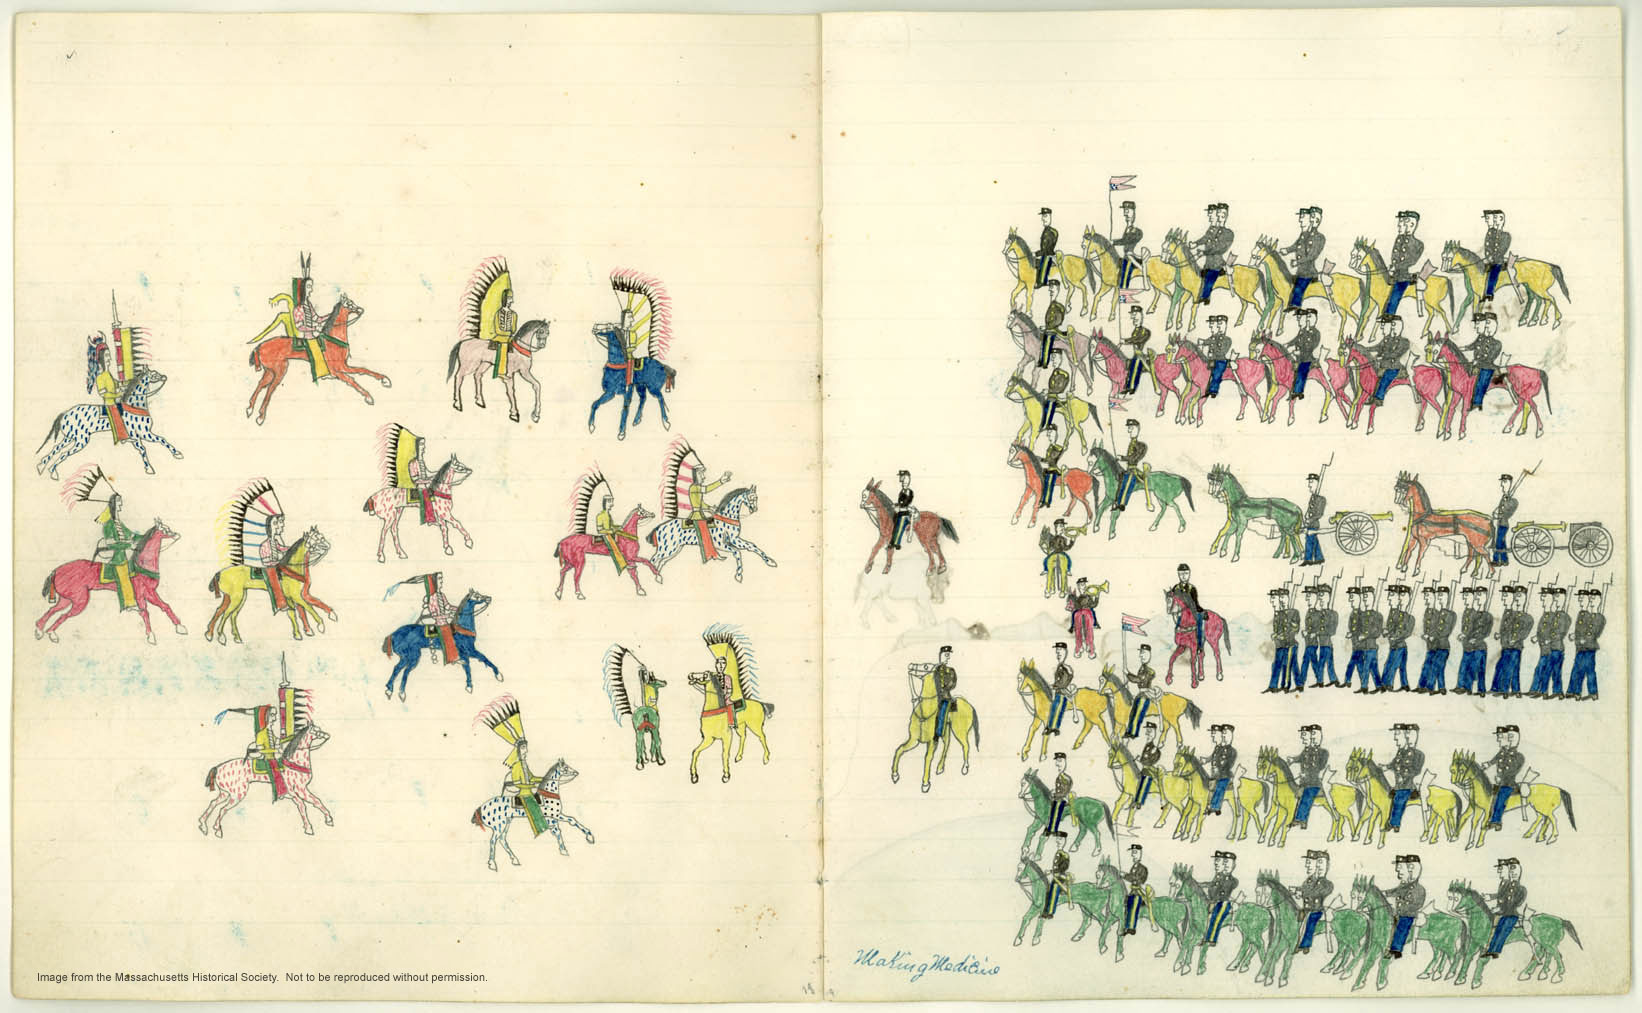 Image from the Massachusetts Historical Society.  Not to be reproduced without permission.
Making Medicine